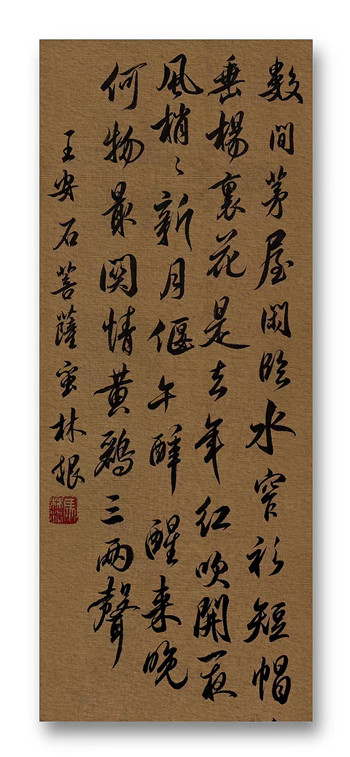 數間茅屋閑临水窄衫短帽
垂楊裏花是去年紅吹開一夜
風梢〻新月偃午醉醒来晚
何物最関情黄鹂三两聲
王安石菩薩蛮林根